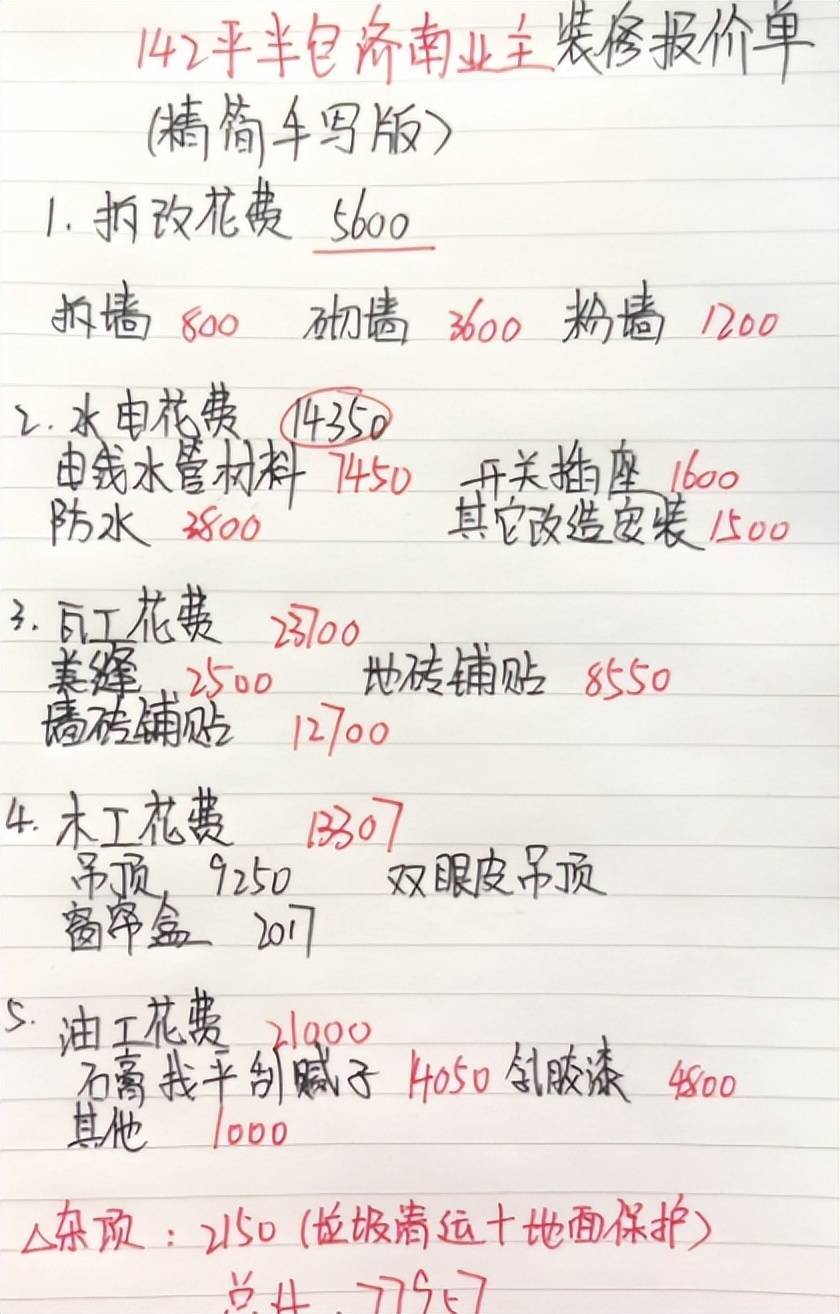 142平半包济南业主装修报价单
(精简手写版)
1. 拆改花费 5600
拆墙 800 砌墙 3600 粉墙 1200
2. 水电花费 14350
电线水管材料 7450 开关插座 1600
防水 3800 其它改造安装 1500
3. 瓦工花费 23700
美缝 2500 地砖铺贴 8550
墙砖铺贴 12700
4. 木工花费 13307
吊顶 9250 双眼皮吊顶
窗帘盒 2017
5. 油工花费 21000
石膏找平刮腻子 14050 乳胶漆 4800
其他 1000
△杂项：2150 (垃圾清运+地面保护)